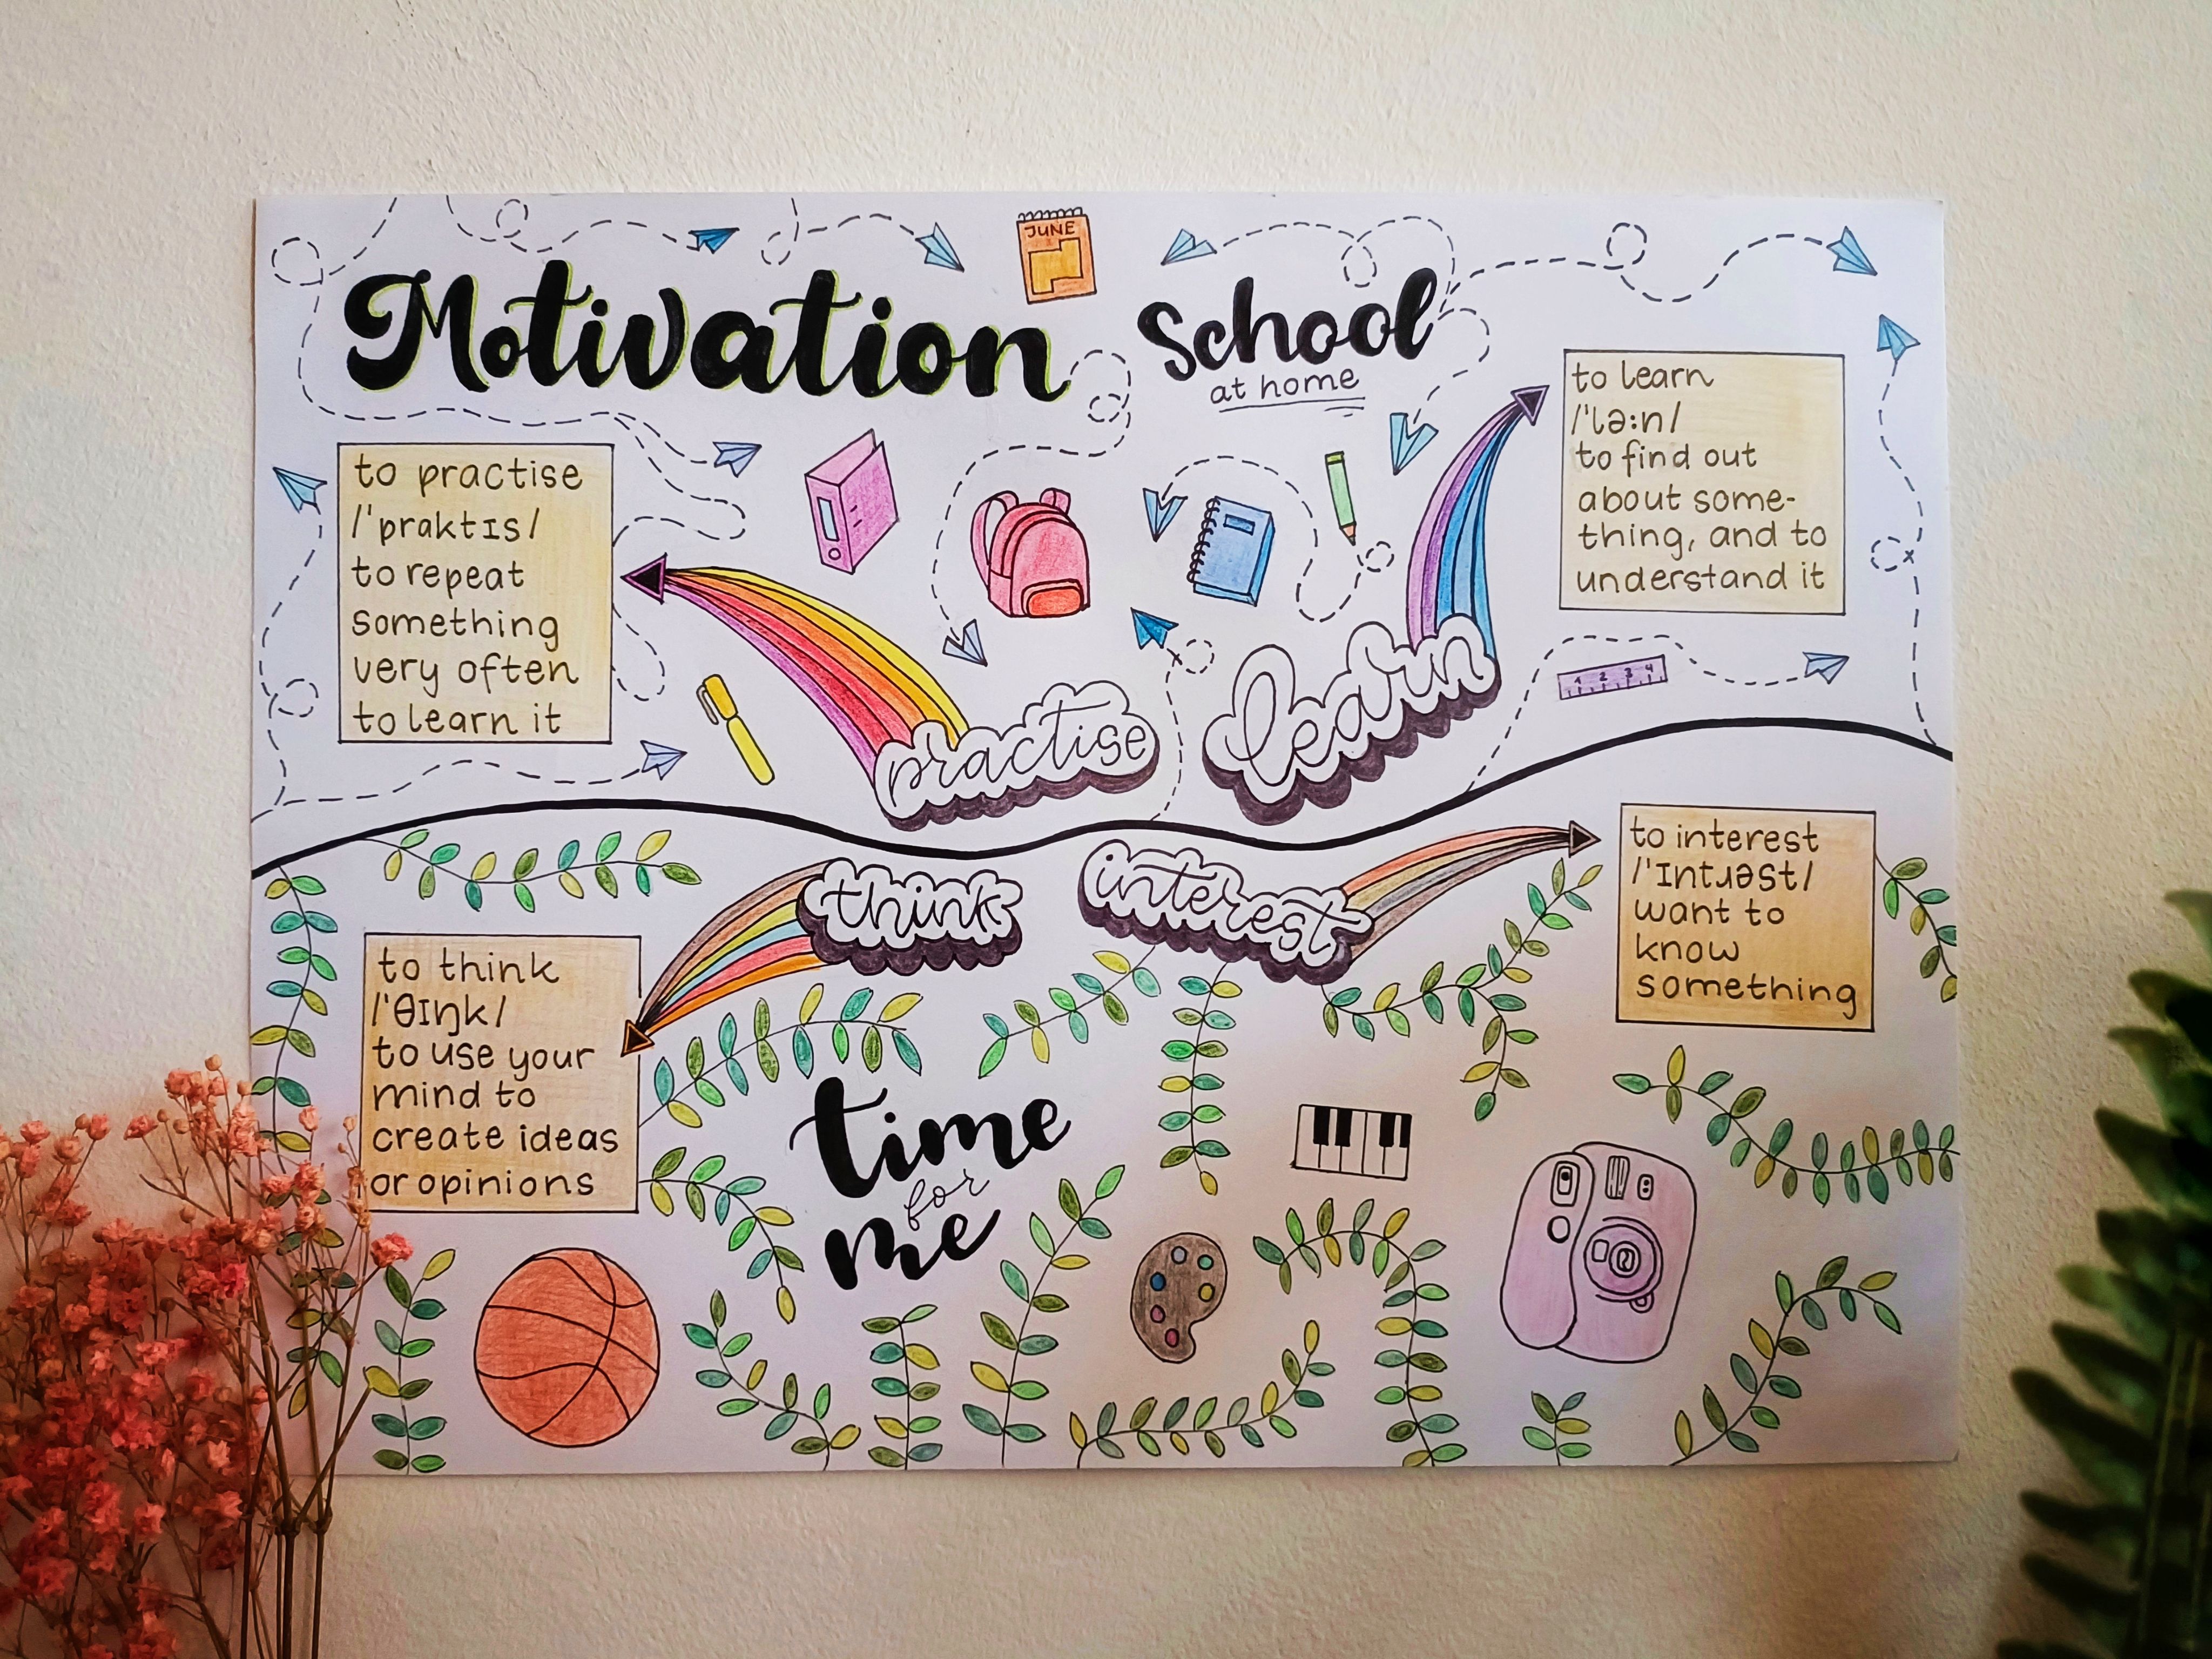 JUNE
Motivation
School
at home
to practise
/ˈpraktɪs/
to repeat
something
very often
to learn it
to learn
/ˈlə:n/
to find out
about some-
thing, and to
understand it
1 2 3 4
practise
learn
think
interest
to think
/ˈθɪŋk/
to use your
mind to
create ideas
or opinions
to interest
/ˈɪntɹəst/
want to
know
something
time
for
me